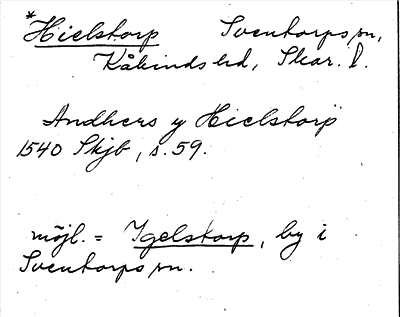 *Hielstorp Sventorps sn,
Kåkinds hd, Skar. l.
Andhers y Hielstorp
1540 Skjb, s. 59.
möjl. = Igelstorp, by i
Sventorps sn.